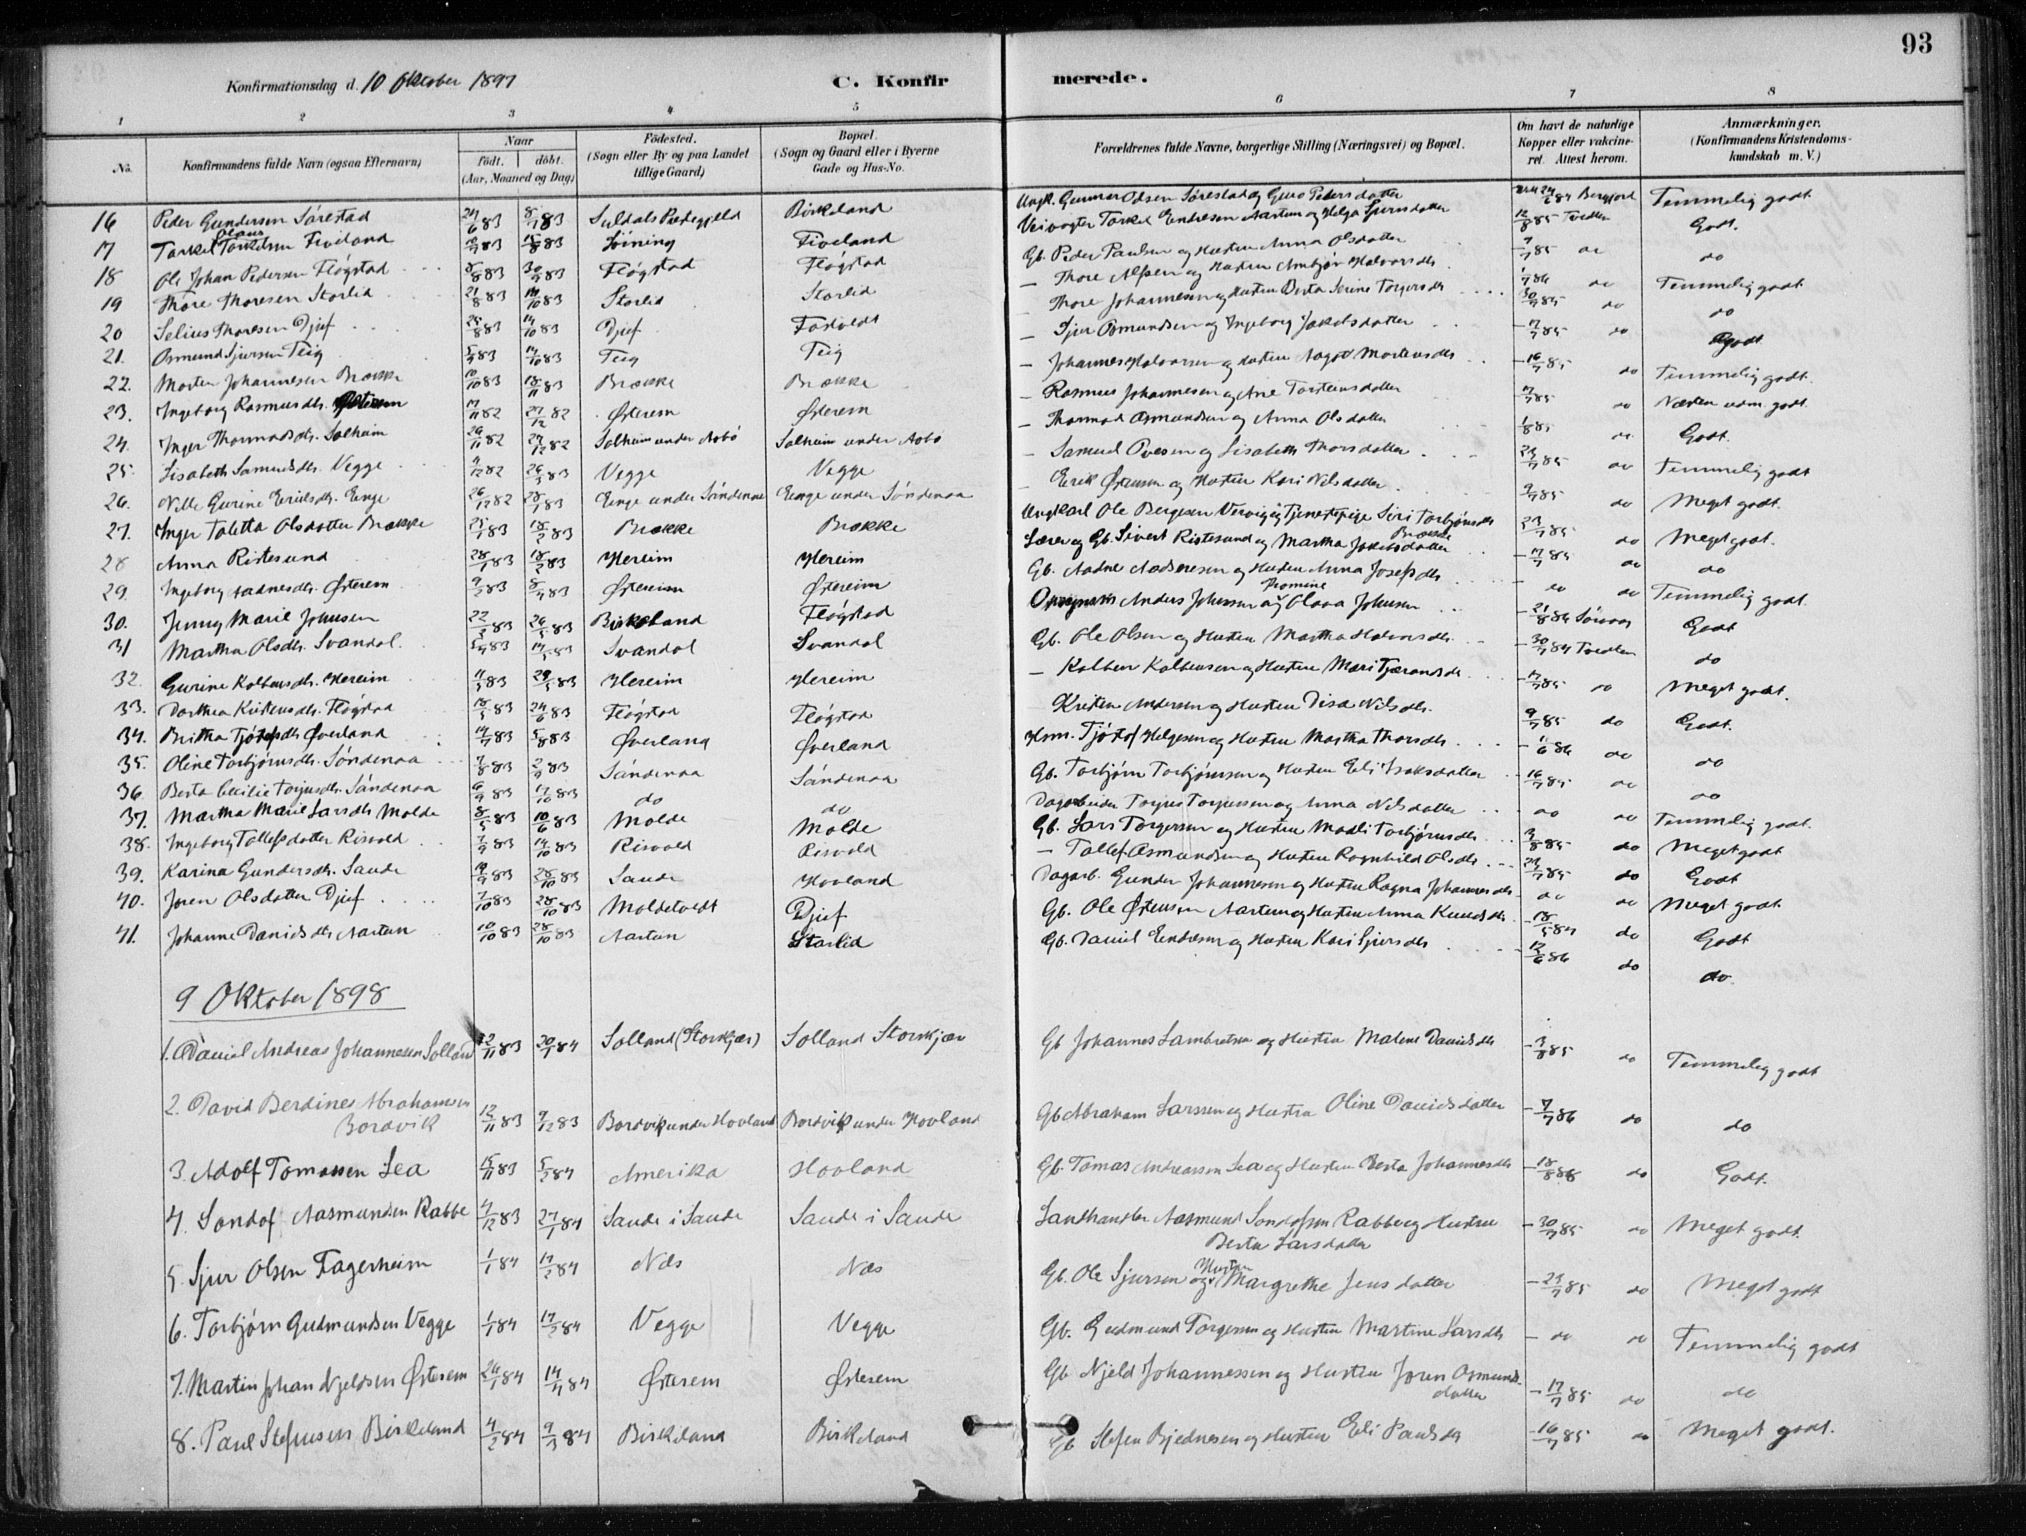 93
Konfirmationsdag d. 10 Oktober 1897
C. Konfirmerede.
1 2 3 4 5 6 7 8
No. Konfirmandens fulde Navn (ogsaa Efternavn) Naar født. døbt. (Aar, Maaned og Dag) Fødested. (Sogn eller By og paa Landet tillige Gaard) Bopæl. (Sogn og Gaard eller i Byerne Gade og Hus-No. Forældrenes fulde Navne, borgerlige Stilling (Næringsvei) og Bopæl. Om havt de naturlige Kopper eller vakcineret. Attest herom. Anmærkninger. (Konfirmandens Kristendomskundskab m. V.)
16 Peder Gundersen Sørestad 83 8/7 83 Suldals Prestegjeld Birkeland Ungk. Gunnar Odsen Sørestad og Guro Pedersdatter 84 Temmelig godt
17 Tarkel Olaus Torkelsen Fiveland 83 83 Fiveland Veivogter Torkel Endresen Aartun og Helga 12/8 85 Tvedten Godt.
18 Ole Johan Pedersen Fløgstad 8/8 83 30/9 83 Fløgstad Fløgstad Gb. Peder Paulsen og Hustru Anna Olsdatter 7/7 85 do do
19 Thore Thoresen Storlid 21/8 83 14/10 83 Storlid Storlid — Thore og Hustru Halvorsdtr 86 do Temmelig godt
20 Selius Thoresen Djuf 25/8 83 14/10 83 Djuf — Thore Johannesen og Hustru Berta Serine Torgersdtr 30/7 85 do do
21. Osmund Sjursen Teig 5/9 83 14/10 83 Teig Teig — Sjur Osmundsen og Ingeborg Jakobsdatter 17/7 85 do Godt
22. Morten Johannesen Brække 10/10 83 18/11 83 Brække Brække — Johannes Halvorsen og Hustru Aagot Mortensdtr 16/7 85 do Temmelig godt.
23. Ingeborg Rasmusdtr. Østerem 17/11 82 27/12 82 Østerem Østerem — Rasmus Johannesen og Ane Torsteinsdatter 17/7 85 do Næsten udm. godt.
24. Inger Thormodsdtr. Solheim 26/11 82 27/12 82 Solheim under Aabø Solheim under Aabø — Thormod Osmundsen og Anna Olsdatter 1/8 85 do Godt.
25. Lisabeth Samuelsdtr. Vegge 4/12 82 83 Vegge Vegge — Samuel Ovesen og Lisabeth Thorsdatter 85 do Temmelig godt
26. Nille Gurine Eriksdtr. Enge 26/12 82 28/1 83 Enge under Søndenaa Enge under Søndenaa — Erik Østensen og Hustru Kari Nilsdatter 9/7 85 do Meget godt.
27. Inger Taletta Olsdatter Brække 25/1 83 18/2 83 Brække Brække Ungkarl Ole Bergesen og Tjenestepige Siri Torbjørnsdtr Brække 85 do Meget godt.
28 Anna Ristesund 28/1 83 18/2 83 Hereim Hereim Lærer og Gb. Sivert Ristesund og Martha Jakobsdatter 17/7 85 do do
29. Ingeborg Aadnesdtr. Østerem 83 8/4 83 Østereim Østereim Gb. Aadne Aadnesen og Hustru Anna Josefsdtr do do Temmelig godt
30. Jenny Marie Johnsen 22/3 83 83 Birkeland Fløgstad Anders Johnsen og Thomine Olava Johnsen 21/8 84 Godt
31 Martha Olsdtr. Svandal 83 83 Svandal Svandal Gb. Ole Olsen og Hustru Martha Halvorsdtr. 30/7 84 Tvedten do
32. Gurine Kolbensdtr. Hereim 83 83 Hereim Hereim — Kolben Kolbensen og Hustru Mari Tjærandsdtr 17/7 85 do Meget godt.
33. Dorthea Kristensdtr. Fløgstad 18/5 83 24/6 83 Fløgstad Fløgstad Kristen Andersen og Hustru Disa Nilsdtr. 9/7 85 do Godt.
34. Britha Tjøstofsdtr Øverland 14/7 83 5/8 83 Øverland Øverland Hsm. Tjøstof Helgesen og Hustru Martha Thorsdtr 86 do do
35. Oline Torbjørnsdtr. Søndenaa 7/8 83 2/9 83 Søndenaa Søndenaa Gb. Torbjørn Torbjørnsen og Hustru Eli Isaksdatter 16/7 85 do do
36 Berta Cecilie Torjusdtr. Søndenaa 6/9 83 17/10 83 do do Dagarbeider Torjus Torjussen og Anna Nilsdatter do do Temmelig godt.
37. Martha Marie Larsdtr Molde 8/5 83 10/6 83 Molde Molde Gb. Lars Torgersen og Hustru Madli Torbjørnsdtr 3/8 85 do Meget godt
38. Ingeborg Tollefsdatter Risvold 7/9 83 14/10 83 Risvold Risvold — Tollef Osmundsen og Hustru Ragnhild Olsdtr 85 do Godt
39. Karina Gundersdtr. Saude 83 28/10 83 Saude Hovland Dagarb. Gunder Johannesen og Hustru Ragna Johannesdtr do do Meget godt.
40. Joren Olsdatter Djuf 7/10 83 28/10 83 Moldetvedt Djuf Gb. Ole Østensen Aartun og Hustru Anna Knudsdtr 18/5 84 do Godt
41. Johanne Danielsdtr Aartun 10/10 83 28/10 83 Aartun Storlid Gb. Daniel Endresen og Hustru Kari Sjursdtr 12/6 86 do do
9 Oktober 1898
1. Daniel Andreas Johannesen Solland 22/11 83 20/1 84 Solland (Storkjær) Solland Storkjær Gb Johannes Lambretsen og Hustru Malene Danielsdtr 3/8 85 do Temmelig godt
2. David Berdines Abrahamsen Bordvik 12/11 83 9/12 83 Bordvik under Hovland Bordvik under Hovland Gb Abraham Larssen og Hustru Oline Davidsdatter 7/7 86 do do
3. Adolf Tomassen Sea 15/11 83 5/2 84 Amerika Hovland Gb. Tomas Andreassen Sea og Hustru Berta Johannesdtr 18/8 86 do Godt.
4. Sondof Aasmundsen Rabbe 4/12 83 27/1 84 Saude i Saude Saude i Saude Landhandler Aasmund Sondofsen Rabbe og Hustru Berta Larsdatter 30/7 85 do Meget godt.
5. Sjur Olsen Fagerheim 1/1 84 17/2 84 Næs Næs Gb. Ole Sjursen og Hustru Margrethe Jensdatter 85 do Meget godt
6. Torbjørn Gudmundsen Vegge 1/1 84 17/2 84 Vegge Vegge Gb. Gudmund Torgersen og Hustru Martine Larsdtr — do do Temmelig godt
7. Martin Johan Njeldsen Østerem 26/1 84 14/4 84 Østerem Østerem Gb Njeld Johannessen og Hustru Joren Osmundsdatter 17/7 85 do do
8. Paul Stefensen Birkeland 4/2 84 9/3 84 Birkeland Birkeland Gb Stefen Bjednesen og Hustru Eli Paulsdtr 16/7 85 do Meget godt.